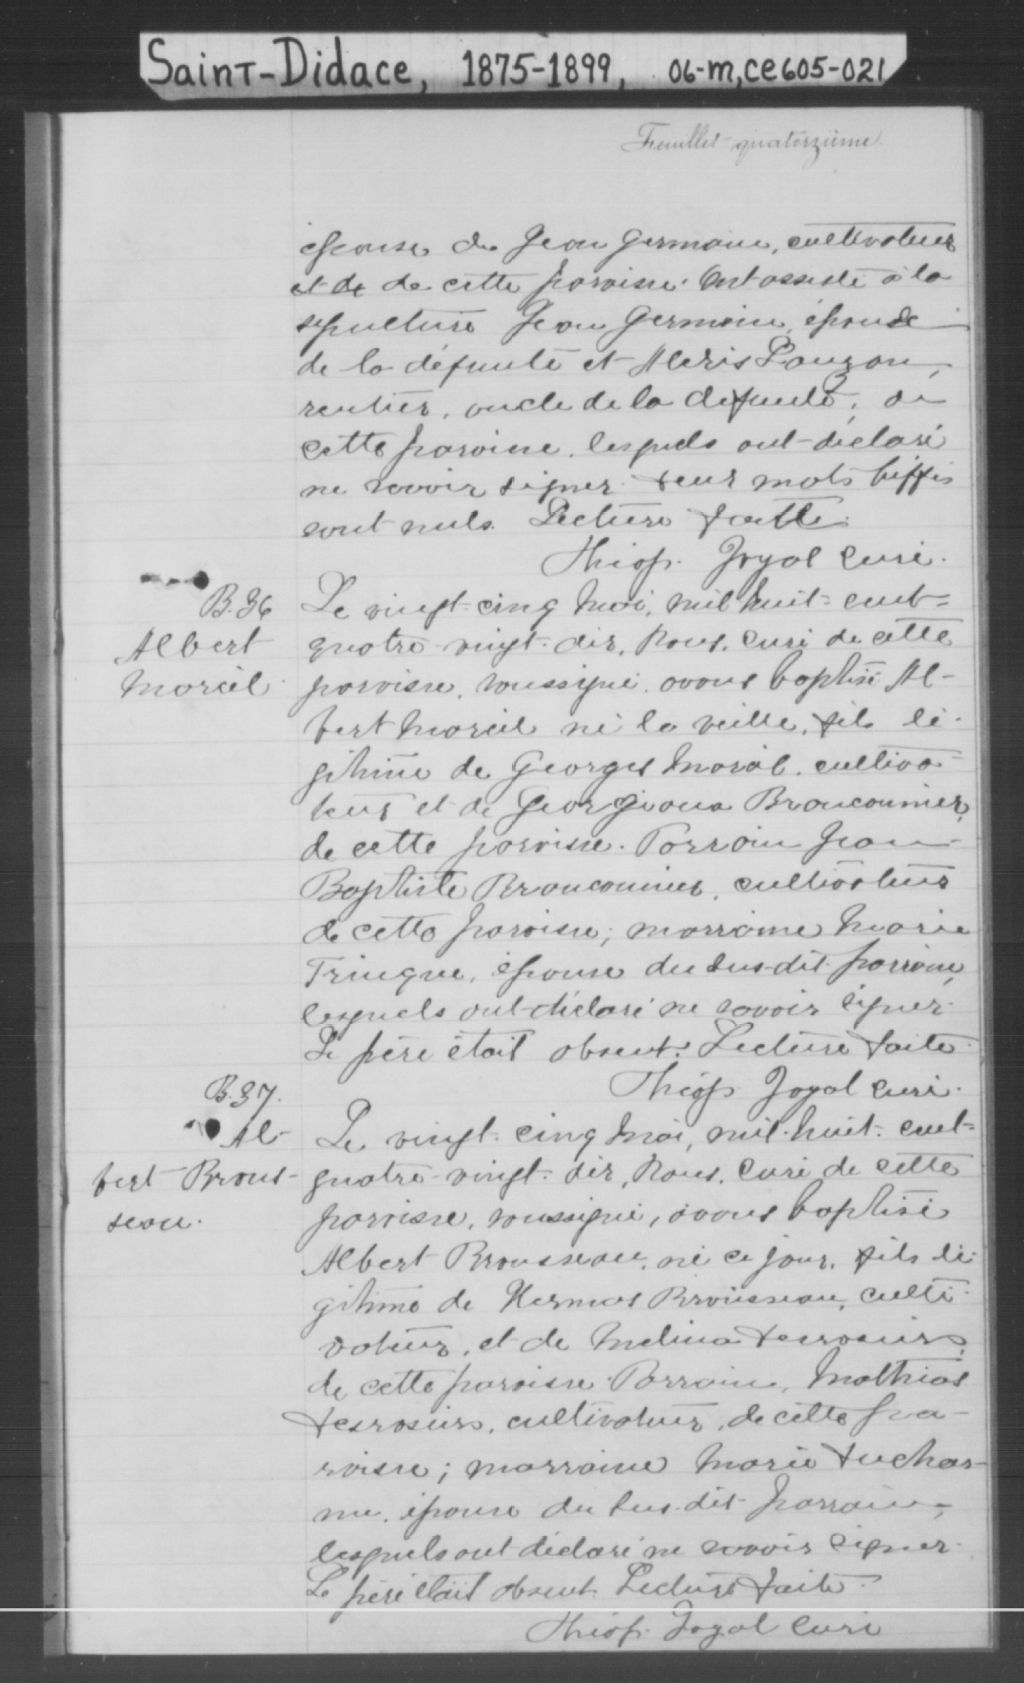 Saint-Didace, 1875-1899, 06-M,CE605-021
Feuillet quatorzième
épouse de Jean Germain, cultivateur
et de de cette paroisse. Ont assisté à la
sépulture Jean Germain, époux
de la défunte et Alexis Pauzon,
rentier, oncle de la défunte, de
cette paroisse, lesquels ont déclaré
ne savoir signer. Deux mots biffés
sont nuls. Lecture faite.
Théop. Joyal Curé.
B. 36
Albert
Marcil
Le vingt-cinq Mai, mil huit-cent-
quatre-vingt-dix, Nous, curé de cette
paroisse, soussigné, avons baptisé Al-
bert Marcil né la veille, fils lé-
gitime de Georges Marcil, cultiva-
teur et de Georgiana Brouconnier,
de cette paroisse. Parrain Jean-
Baptiste Brouconnier, cultivateur
de cette paroisse; marraine Marie
Tringue, épouse du sus-dit parrain,
lesquels ont déclaré ne savoir signer.
Le père était absent. Lecture faite.
Théop. Joyal Curé.
B. 37.
Al-
bert Brous-
seau.
Le vingt-cinq Mai, mil-huit-cent-
quatre-vingt-dix, Nous, curé de cette
paroisse, soussigné, avons baptisé
Albert Brousseau, né ce jour, fils lé-
gitime de Hermas Brousseau, culti-
vateur, et de Melina Desrosiers,
de cette paroisse. Parrain, Mathias
Desrosiers, cultivateur, de cette pa-
roisse; marraine Marie Duchar-
me, épouse du sus-dit parrain,
lesquels ont déclaré ne savoir signer.
Le père était absent. Lecture faite.
Théop. Joyal Curé